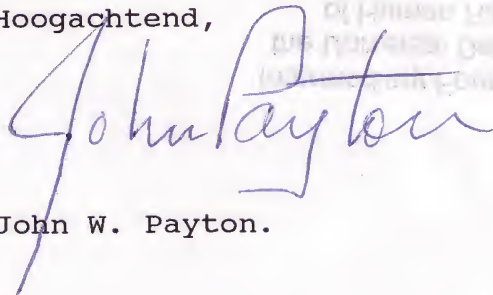 Hoogachtend,
John Payton
John W. Payton.